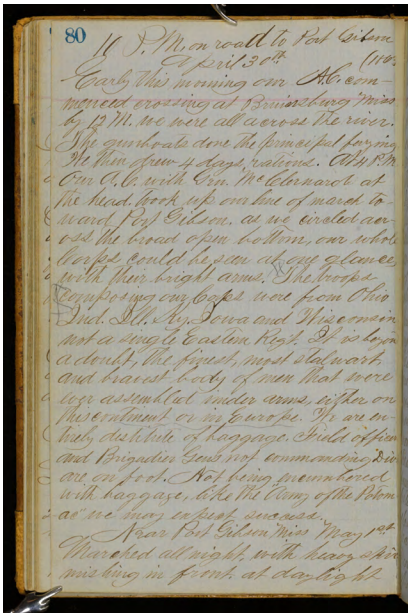 80
10 P.M. on road to Port Gibson
April 30th (186
Early this morning our A.C. com-
menced crossing at Bruinsburg Miss
by 12 M. we were all across the river.
The gunboats done the principal
We then drew 4 days, rations. At 4 P.M.
Our A.C. with Gen. McClernard at
the head. took up our line of march to-
ward Port Gibson. as we circled acr-
oss the broad open bottom, our whole
Corps could be seen at one glance
with their bright arms. The troops
composing our Corps were from Ohio
Ind. Ill. Ky. Iowa and Wisconsin
not a single Eastern Regt. It is beyon
a doubt, the finest, most stalwart
and bravest body of men that were
ever assembled under arms, either on
this continent or in Europe. We are en-
tirely destitute of baggage. Field officers
and Brigadier Gens not commanding Div
are on foot. Not being incumbered
with baggage, like the Army of the Potom
ac we may expect success.
Near Port Gibson Miss May 1st
Marched all night, with heavy skir
mishing in front. at daylight